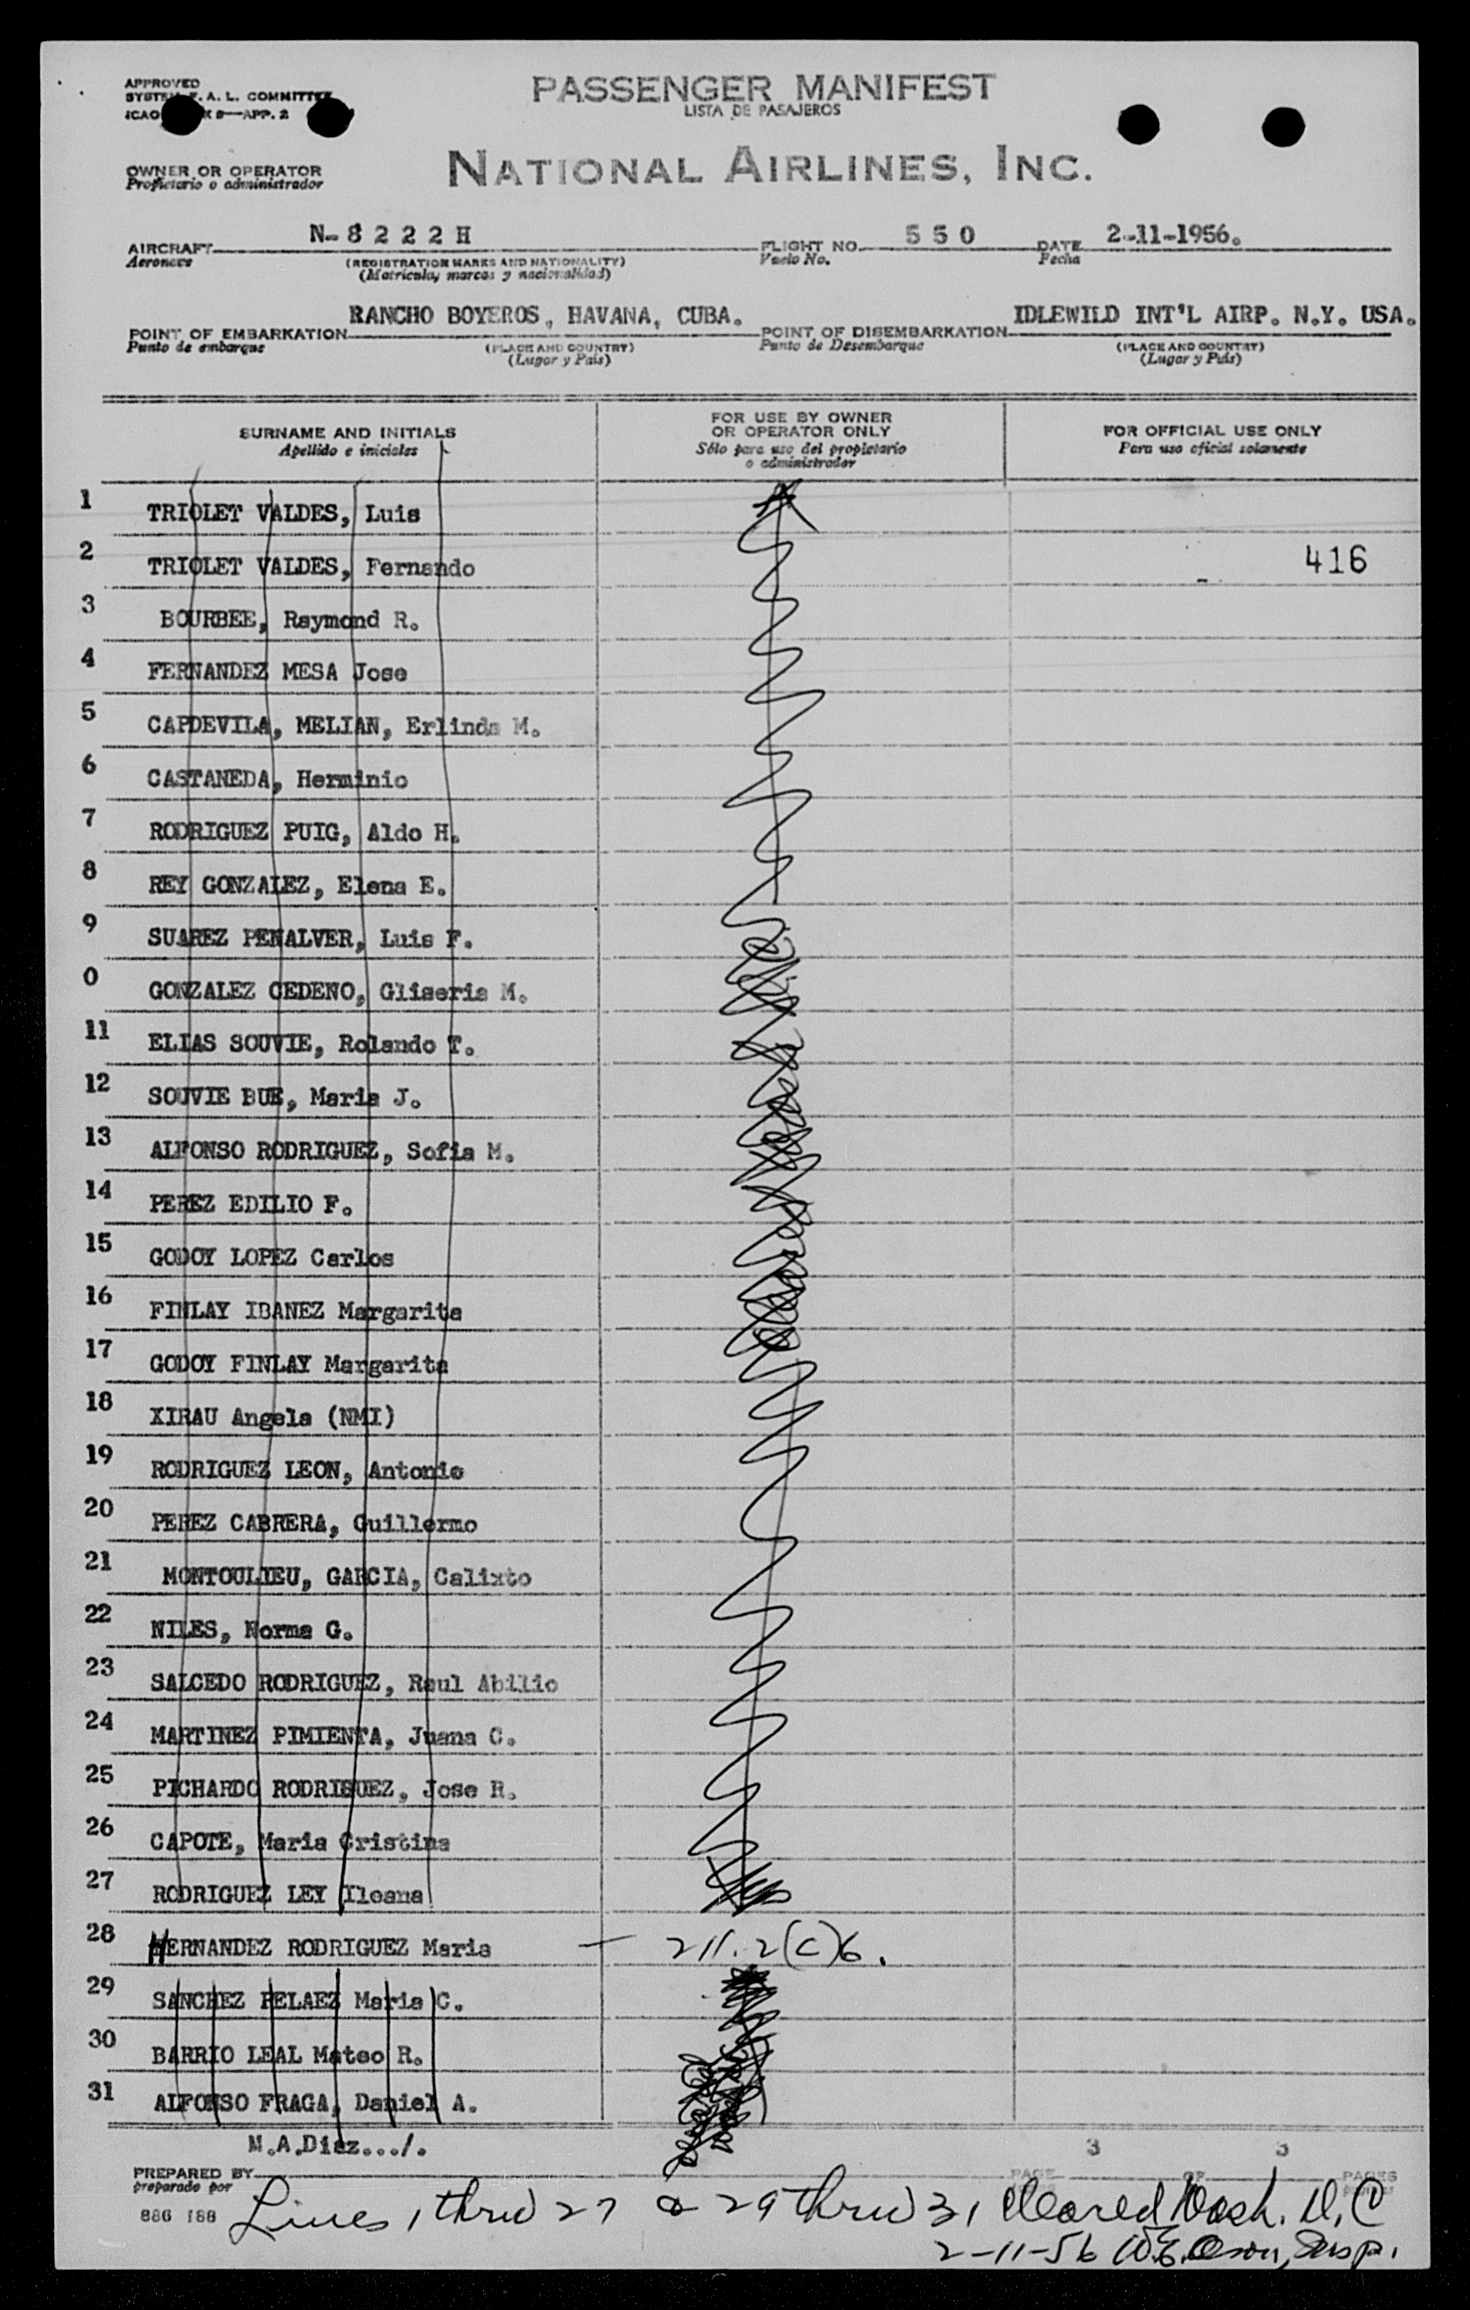 APPROVED
PASSENGER MANIFEST
LISTA DE PASAJEROS
OWNER OR OPERATOR
Propietario o administrador
NATIONAL AIRLINES, INC.
AIRCRAFT N-8222H FLIGHT NO. 550 DATE 2-11-1956.
Aeronave (REGISTRATION MARKS AND NATIONALITY) Vuelo No. Fecha
(Matricula, marcas y nacionalidad)
POINT OF EMBARKATION RANCHO BOYEROS, HAVANA, CUBA. POINT OF DISEMBARKATION IDLEWILD INT'L AIRP. N.Y. USA.
Punto de embarque (PLACE AND COUNTRY) Punto de Desembarque (PLACE AND COUNTRY)
(Lugar y País) (Lugar y País)
SURNAME AND INITIALS
Apellido e iniciales
FOR USE BY OWNER
OR OPERATOR ONLY
Sólo para uso del propietario
o administrador
FOR OFFICIAL USE ONLY
Para uso oficial solamente
1 TRIOLET VALDES, Luis
2 TRIOLET VALDES, Fernando 416
3 BOURBEE, Raymond R.
4 FERNANDEZ MESA Jose
5 CAPDEVILA, MELIAN, Erlinda M.
6 CASTANEDA, Herminio
7 RODRIGUEZ PUIG, Aldo H.
8 REY GONZALEZ, Elena E.
9 SUAREZ PENALVER, Luis F.
0 GONZALEZ CEDENO, Gliseria M.
11 ELIAS SOUVIE, Rolando T.
12 SOUVIE BUE, Maria J.
13 ALFONSO RODRIGUEZ, Sofia M.
14 PEREZ EDILIO F.
15 GODOY LOPEZ Carlos
16 FINLAY IBANEZ Margarita
17 GODOY FINLAY Margarita
18 XIRAU Angela (NMI)
19 RODRIGUEZ LEON, Antonio
20 PEREZ CABRERA, Guillermo
21 MONTOULIEU, GARCIA, Calixto
22 NILES, Norma G.
23 SALCEDO RODRIGUEZ, Raul Abilio
24 MARTINEZ PIMIENTA, Juana C.
25 PICHARDO RODRIGUEZ, Jose R.
26 CAPOTE, Maria Cristina
27 RODRIGUEZ LEY Ileana
28 HERNANDEZ RODRIGUEZ Maria — 211.2(c)6.
29 SANCHEZ PELAEZ Maria C.
30 BARRIO LEAL Mateo R.
31 ALFONSO FRAGA, Daniel A.
M.A.Diaz.../.
PREPARED BY PAGE 3 OF 3 PAGES
preparado por
886 188
Lines 1 thru 27 & 29 thru 31 cleared Wash. D.C
2-11-56 W.E. Insp.